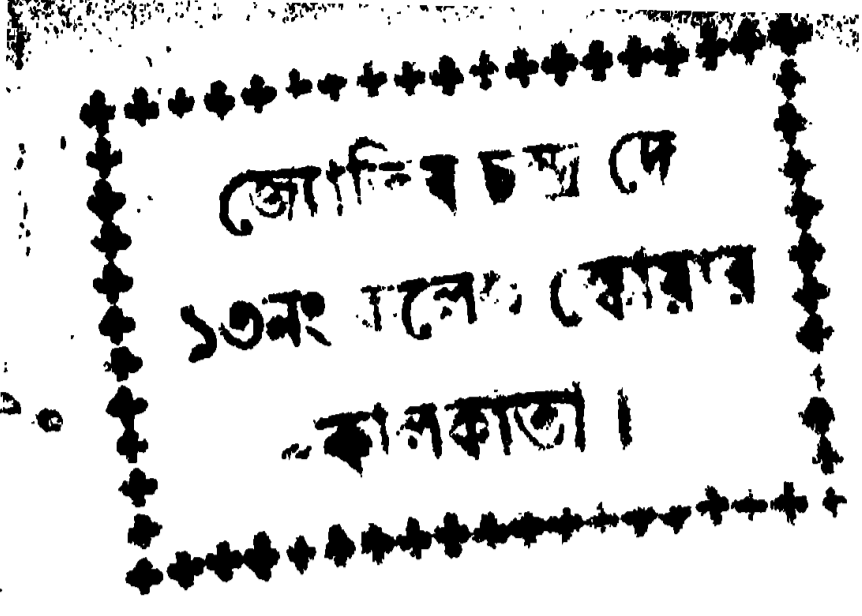 জ্যোতিষ চন্দ্র দে
১৩নং কলেজ স্কোয়ার
কলিকাতা ।